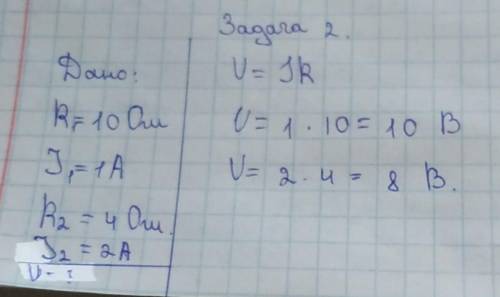 Задача 2.
Дано:
R₁=10 Ом
J₁=1А
R₂ = 4 Ом.
J₂ = 2А
U-?
U= JR
U= 1 · 10 = 10 В
U= 2 · 4 = 8 В.